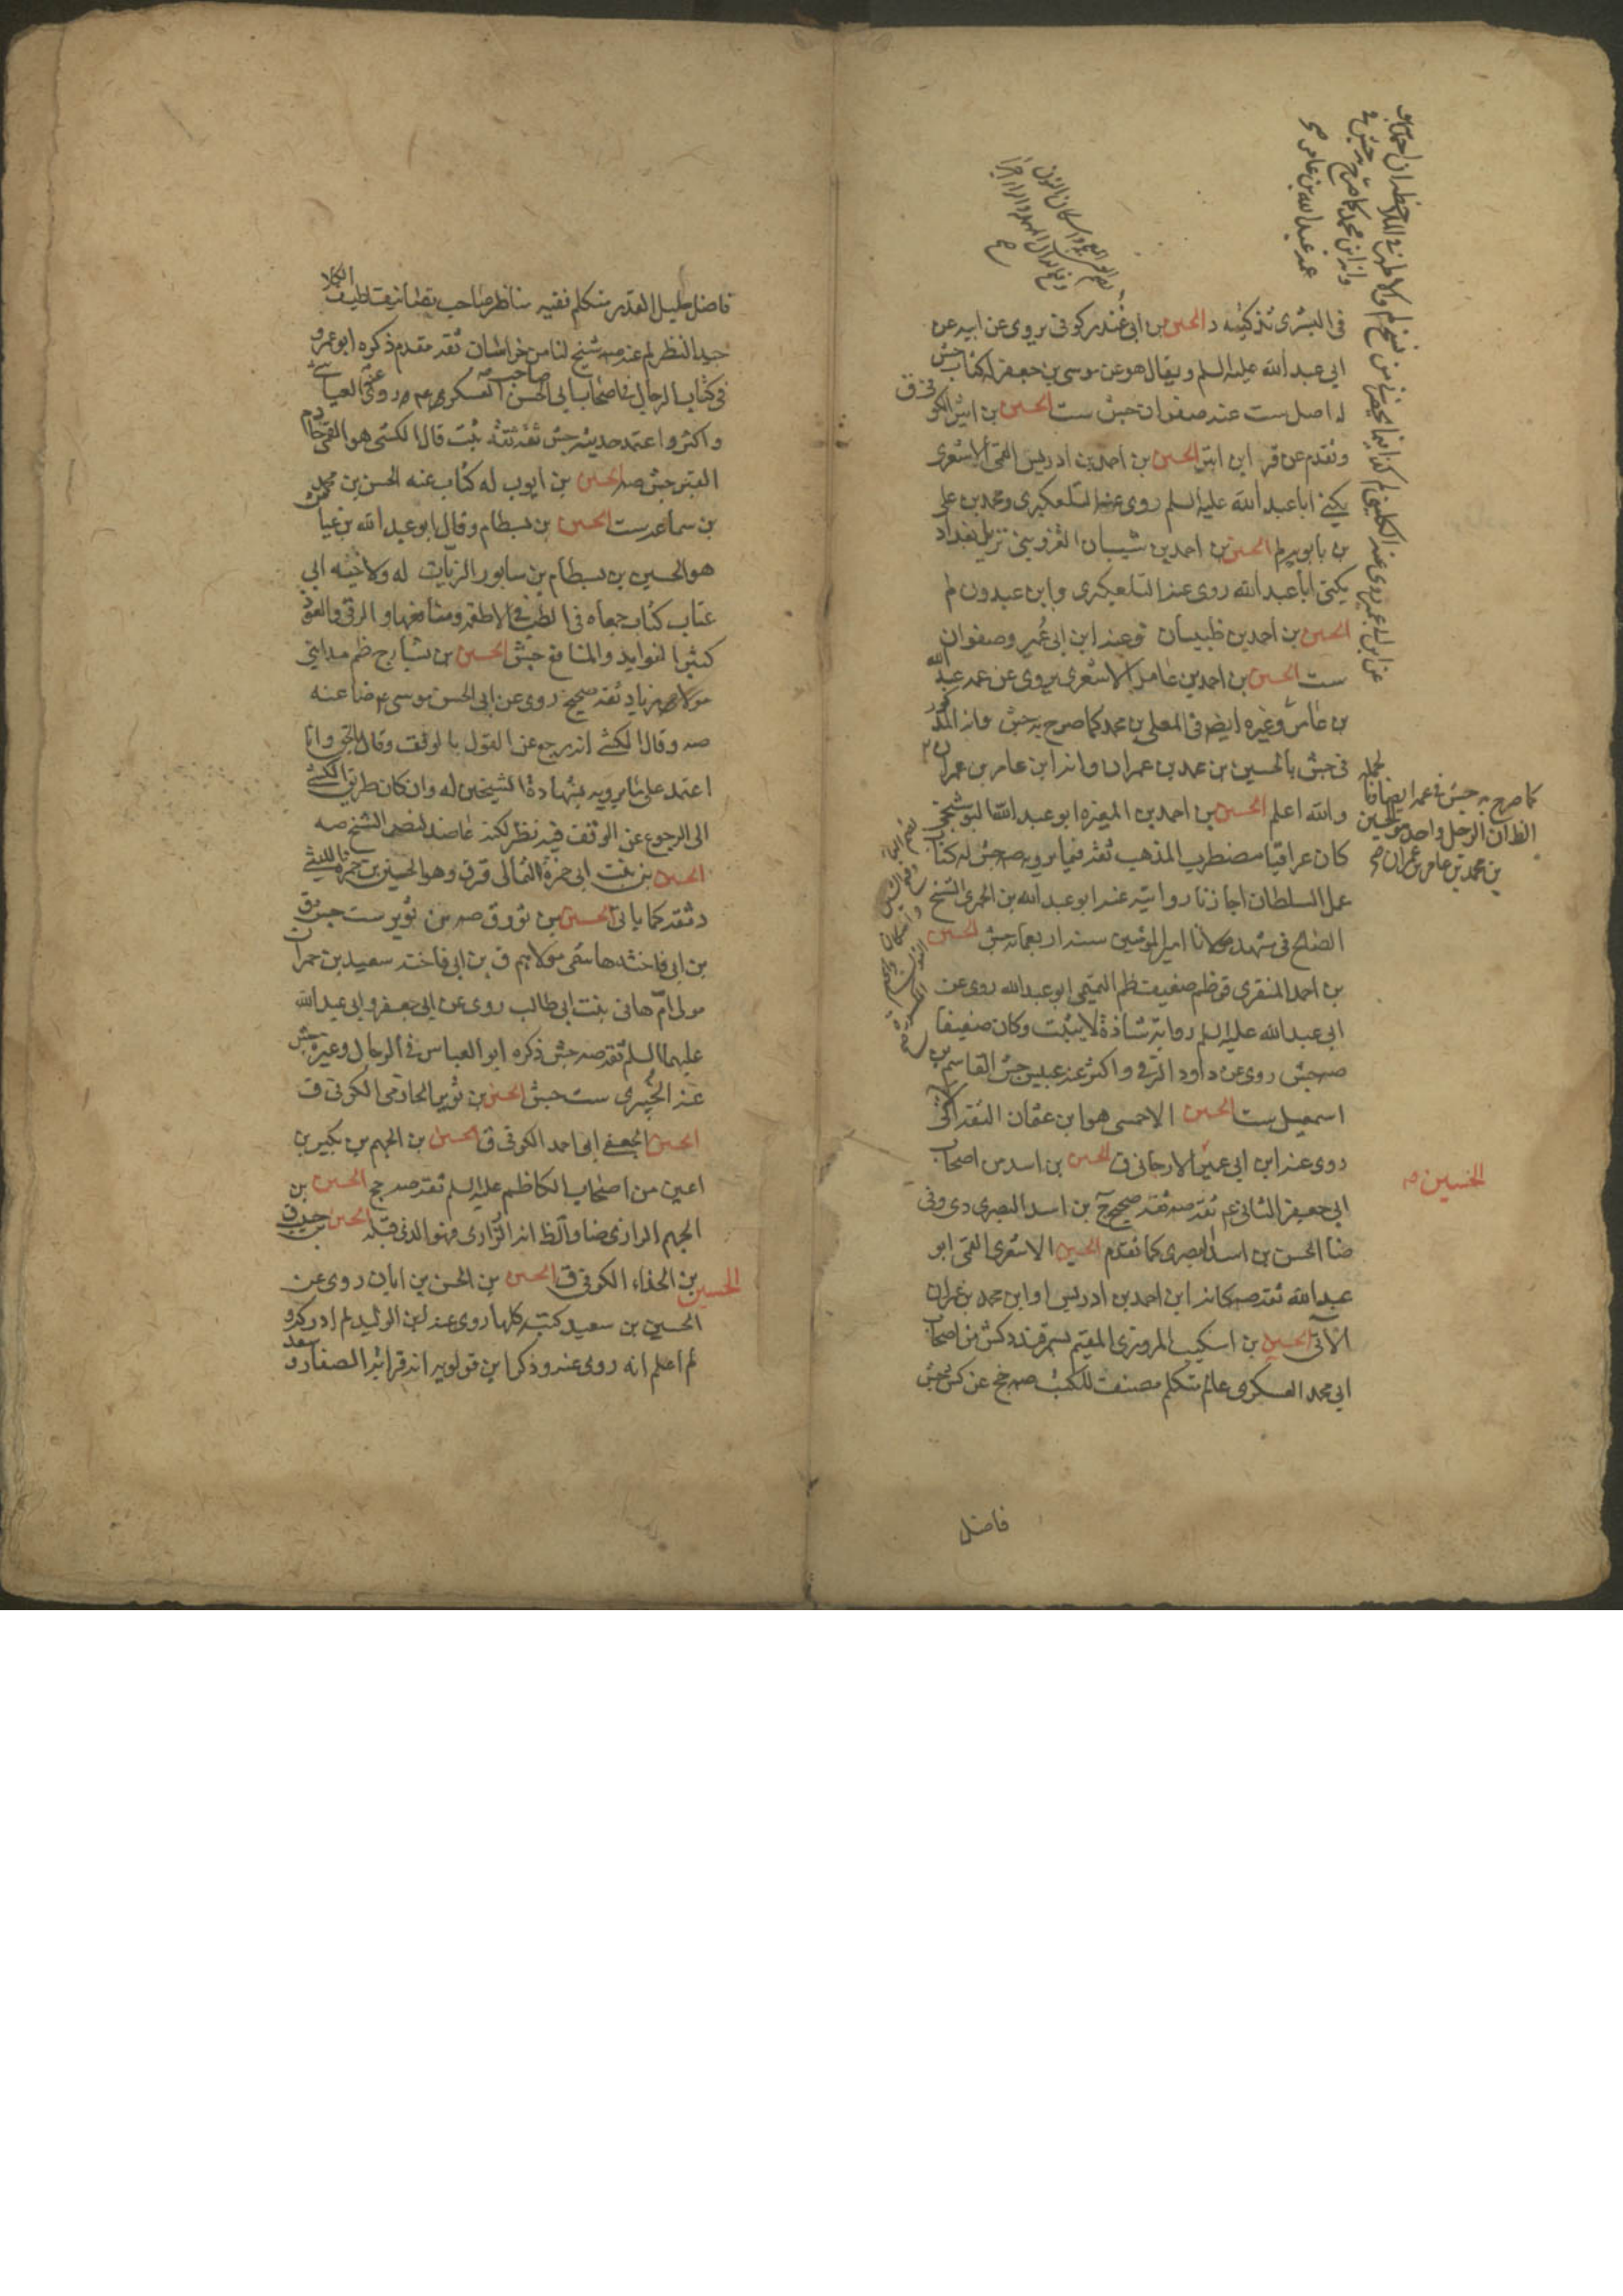 في البشرى تزكيته د الحسين بن ابي غندر كوفي يروي عن ابيه عن
ابي عبد الله عليه السلم ويقال هو عن موسى بن جعفر له كتاب جش
له اصل ست عنه صفوان جش ست الحسين بن اثير الكوفي ق
وتقدم عن قر ابن ابتر الحسين بن احمد بن ادريس القمي الاشعري
يكنى ابا عبد الله عليه السلم روى عنه التلعكبري ومحمد بن علي
بن بابويه لم الحسين بن احمد بن شيبان القزويني نزيل بغداد
يكنى ابا عبد الله روى عنه التلعكبري وابن عبدون لم
الحسين بن احمد بن ظبيان ق وعنه ابن ابي عمير وصفوان
ست الحسين بن احمد بن عامر الاشعري يروي عن عمه عبد الله
بن عامر وغيره ايض في المعلى بن محمد كما صرح به جش وانه المذكور
في جش بالحسين بن محمد بن عمران وانه ابن عامر بن عمران
والله اعلم الحسين بن احمد بن المغيرة ابو عبد الله البوشنجي
كان عراقيا مضطرب المذهب ثقة فيما يرويه صه جش له كتاب
عمل السلطان اجازنا روايته عنه ابو عبد الله بن الخمري الشيخ
الصالح في مشهد مولانا امير المؤمنين سنة اربعمائة جش الحسين
بن احمد المنقري قر ظم ضعيف ظم التميمي ابو عبد الله روى عن
ابي عبد الله عليه السلم رواية شاذة لا يثبت وكان ضعيفا
صه جش روى عن داود الرقي واكثر عنه عبيس جش القاسم بن
اسمعيل ست الحسين الاحمسي هو ابن عثمان الثقة الآتي
روى عنه ابن ابي عمير الارجاني ق الحسين بن اسد من اصحاب
ابي جعفر الثاني ع ثقة صه ثقة صحيح ج بن اسد البصري دي وفي
ضا الحسن بن اسد البصري كما تقدم الحسين الاشعري القمي ابو
عبد الله ثقة صه كانه ابن احمد بن ادريس او ابن محمد بن عمران
الآتي الحسين بن اشكيب المروزي المقيم بسمرقند وكش من اصحاب
ابي محمد العسكري عالم متكلم مصنف للكتب صه جخ عن كش جش
فاضل
كما صرح به جش في عمه ايضا فا لجملة
الظ ان الرجل واحد هو الحسين
بن محمد بن عامر بن عمران
الحسين
فاضل جليل القدر متكلم فقيه مناظر صاحب تصانيف لطيف الكلام
جيد النظر لم عنه صه شيخ لنا من خراسان ثقة مقدم ذكره ابو عمرو
في كتاب الرجال في اصحاب ابي الحسن صاحب العسكر ع روى عنه العياشي
واكثر واعتمد حديثه جش ثقة ثقة ثبت قال الكشي هو القمي خادم
القبر جش صه الحسين بن ايوب له كتاب عنه الحسن بن محمد
بن سماعة ست الحسين بن بسطام وقال ابو عبد الله بن عياش
هو الحسين بن بسطام بن سابور الزيات له ولاخيه ابي
عتاب كتاب جمعاه في الطب في الاطعمة ومنافعها والرقى والعوذ
كثير الفوايد والمنافع جش الحسين بن بشار ج ظم مدايني
مولى زياد ثقة صحيح روى عن ابي الحسن موسى ع ضا عنه
صه وقال الكشي انه رجع عن القول بالوقف وقال بالحق وانا
اعتمد على ما يرويه بشهادة الشيخين له وان كان طريق الكشي
الى الرجوع عن الوقف فيه نظر لكنه عاضد لنص الشيخ صه
الحسين بن بنت ابي حمزة الثمالي قر ق وهو الحسين بن حمزة الليثي
ثقة كما ياتي الحسين بن ثور ق صه بن ثوير ست جش ق
بن ابي فاختة هاشمي مولاهم ق بن ابي فاخته سعيد بن حمران
مولى ام هاني بنت ابي طالب روى عن ابي جعفر وابي عبد الله
عليهما السلم ثقة صه جش ذكره ابو العباس في الرجال وغيره جش
عنه الخيبري ست جش الحسين بن ثوير الحازمي الكوفي ق
الحسين الجعفي ابي احمد الكوفي ق الحسين بن الجهم بن بكير بن
اعين من اصحاب الكاظم عليه السلم ثقة صه جخ الحسين بن
الجهم الرازي ضا والظ انه الزراري فهو الذي قبله الحسين
الحسين بن الحذاء الكوفي ق الحسين بن الحسن بن ابان روى عن
الحسين بن سعيد كتبه كلها روى عنه ابن الوليد لم ادركه و
لم اعلم انه روى عنه وذكر ابن قولويه انه قرابة الصفار وسعد